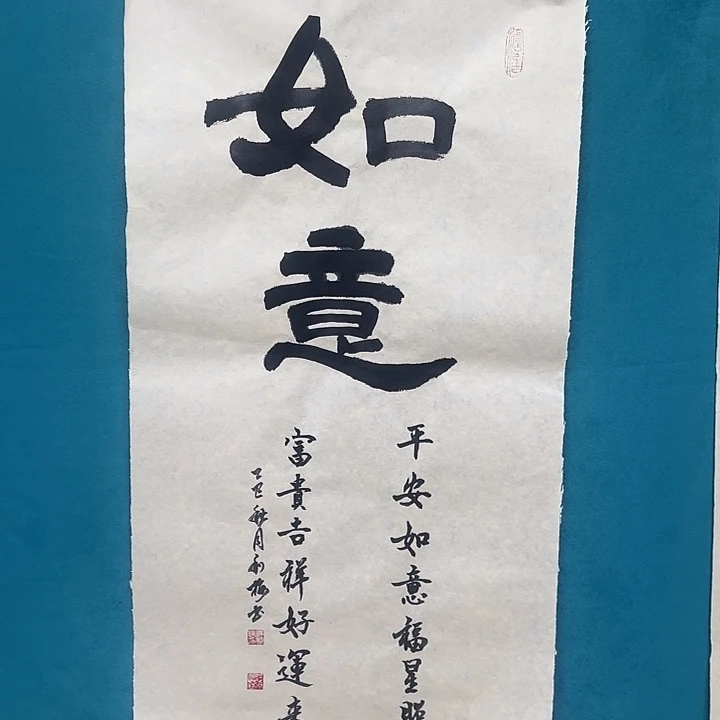 如意
平安如意福星照
富貴吉祥好運来
乙巳秋月